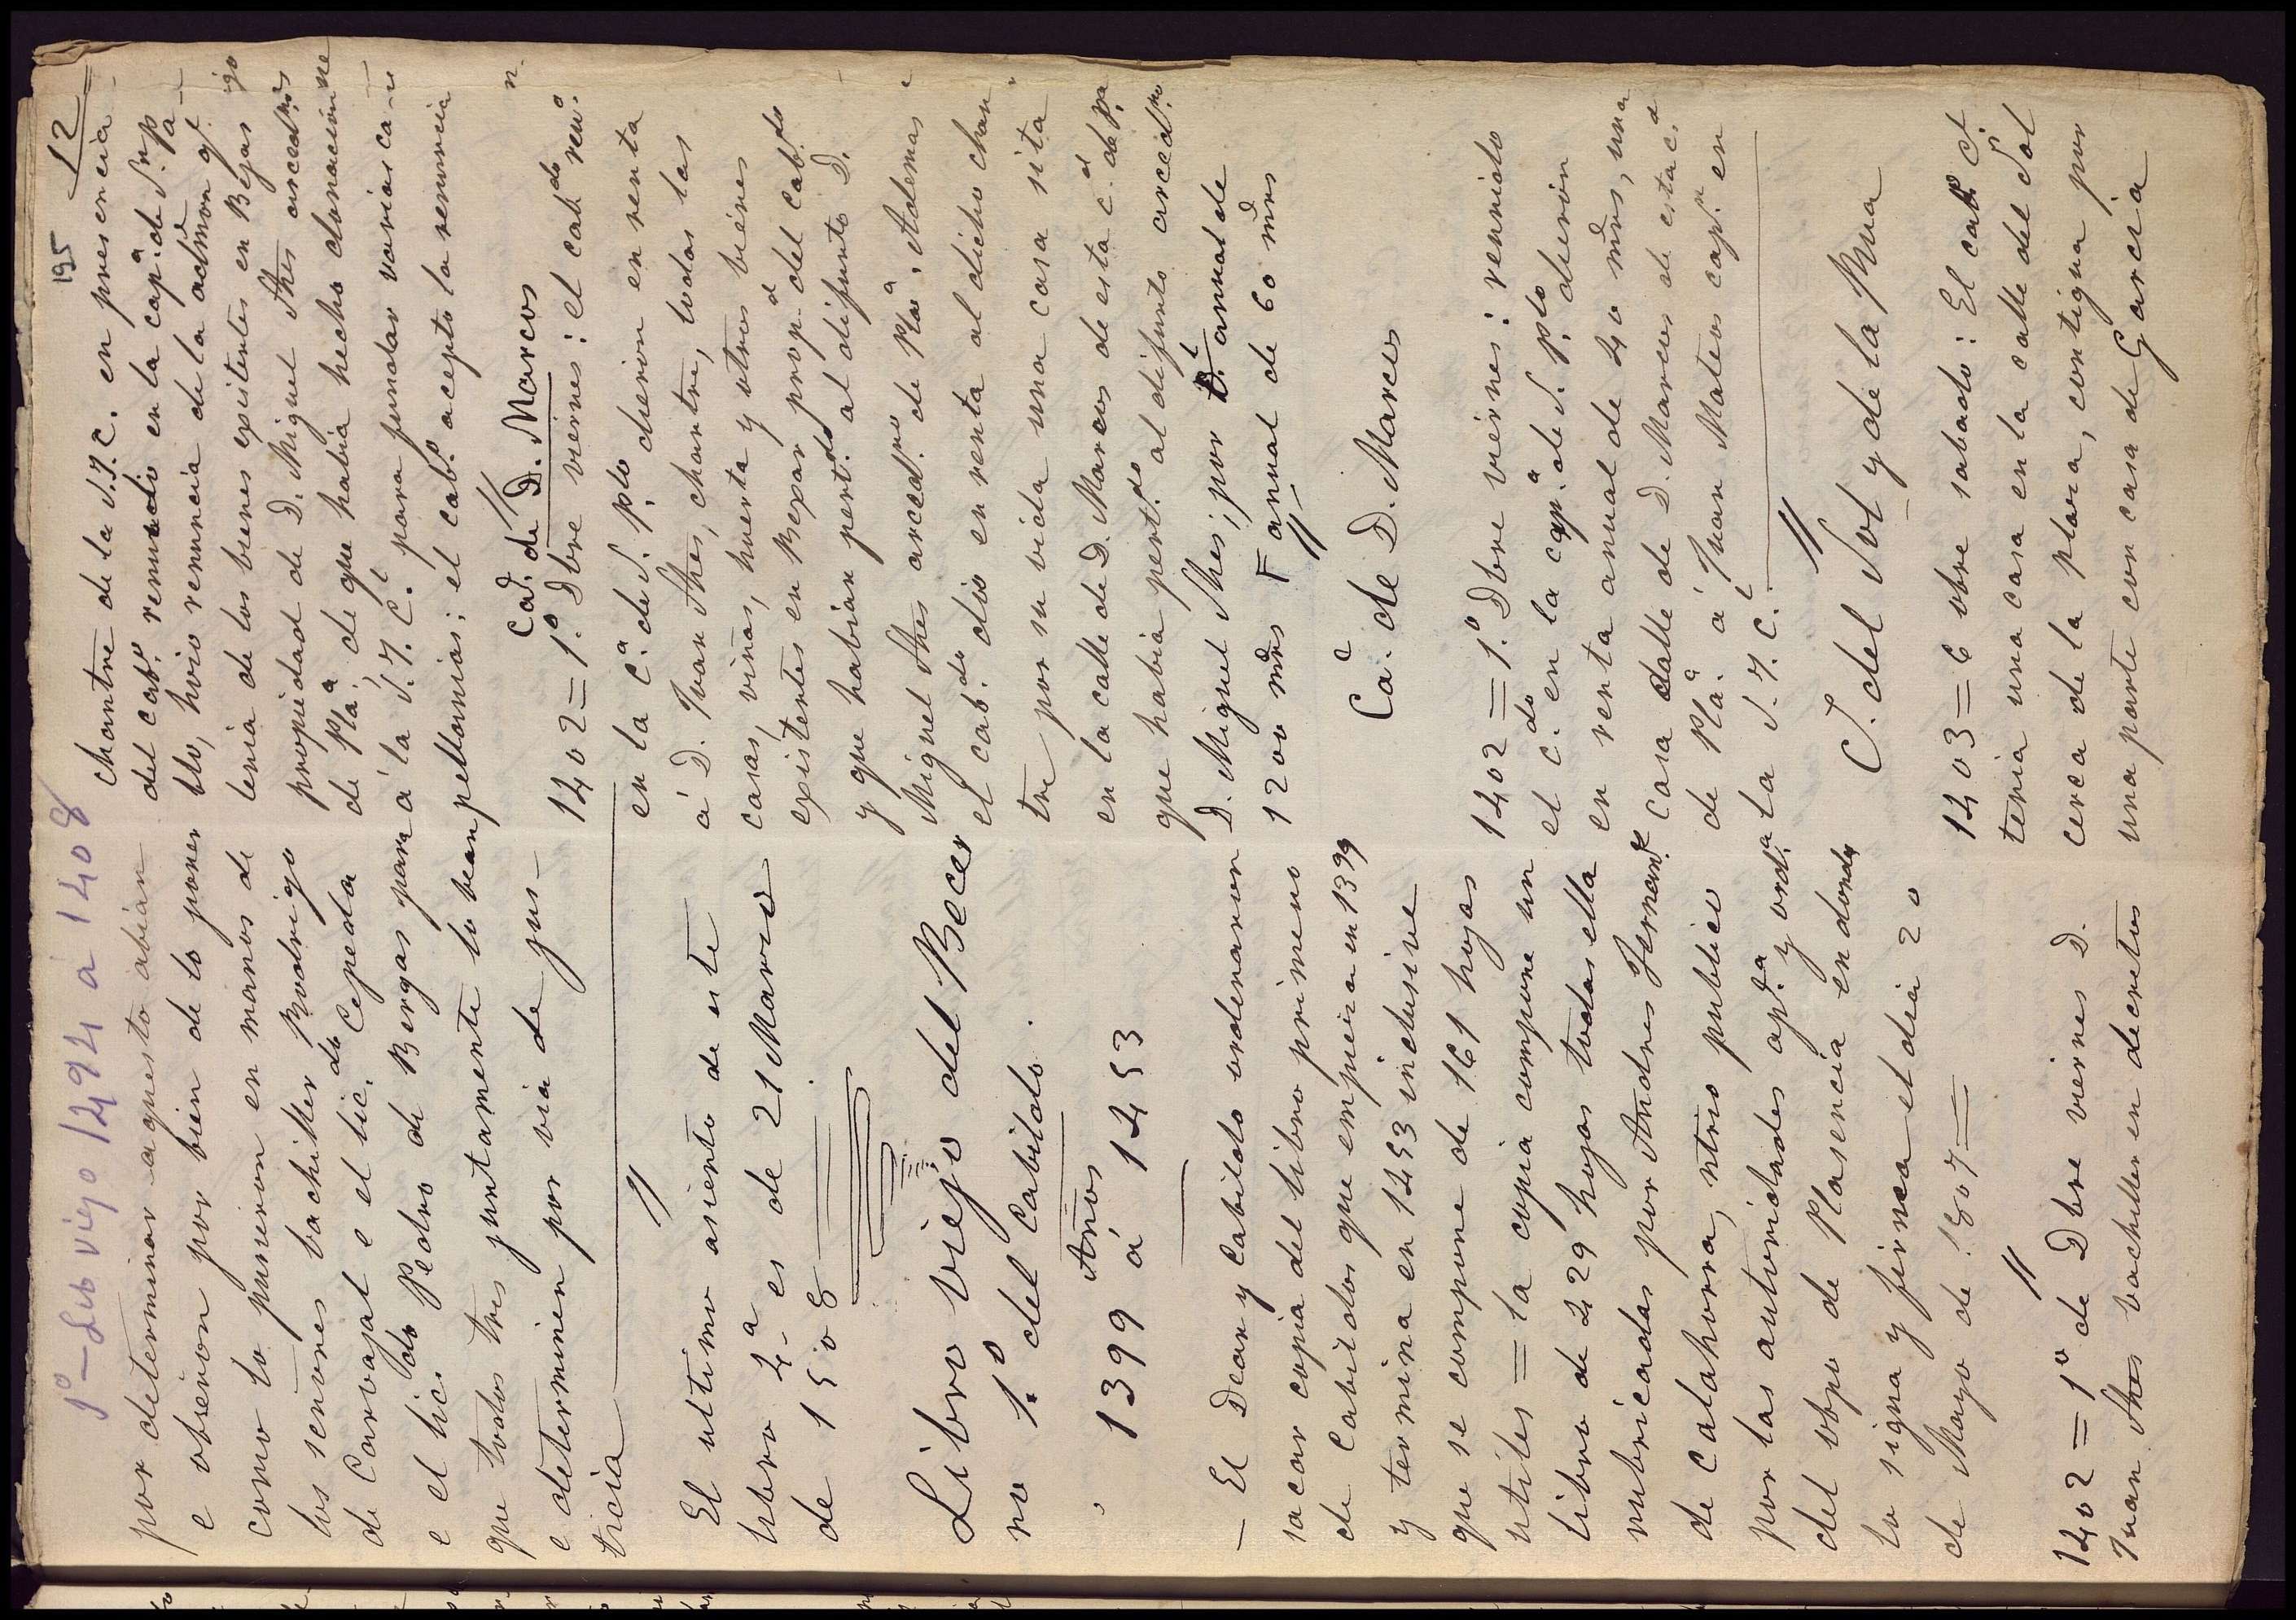 1º- Lib viejo 1494 a 1408
195
12
por determinar aquesto abian
e obseron por bien de lo poner
como lo pusieron en manos de
los señores bachiller Rodrigo
de Carvajal e el lic.do Cepeda
e el lic.do Pedro de Bergas para
que todos tres juntamente lo bean
e determinen por via de jus-
ticia
El ultimo asiento de este
libro 4ª es de 21 Marzo
de 1508
Libro viejo del Becer
ro 1.º del Cabildo.
Años
1399 á 1453
- El Dean y Cabildo ordenaron
sacar copia del libro primero
de Cabildos que empieza en 1399
y termina en 1453 inclusive
que se compone de 161 hojas
utiles = la copia compone un
libro de 429 hojas todas ella
rubricadas por Andres Fernand.z
de Calahorra, ntrio publico
por las autoridades ap.ca y ord.a
del obpo de Plasencia en donde
lo signa y firma el dia 20
de Mayo de 1807 =
1402 = 1º de Dbre viernes D.
Juan Shes bachiller en decretos
chantre de la S.Y.C. en presencia
del cab.º reunido en la cap.a de S.n Pa-
blo, hizo renuncia de la admon q.e
tenia de los bienes existentes en Bejar
propiedad de D. Miguel Shes arced.no
de Pla.a de que habia hecho donacion
á la S.Y.C.l para fundar varias ca-
pellanias; el cab.º acepto la renuncia
Ca.e de D. Marcos
1402 = 1.º Dbre viernes: el cab.do reu.º
en la c.a de S. P.lo dieron en renta
á D. Juan Shes, chantre, todas las
casas, viñas, huerta y otros bienes
existentes en Bexar prop.d del cab.do
y que habian pert.do al difunto D.
Miguel Shes arced.no de Pla.a. Ademas
el cab.do dio en renta al dicho chan
tre por su vida una casa sita
en la calle de D. Marcos de esta c.d de Pa
que habia pert.do al difunto arced.no
D. Miguel Shes; por annal de
1200 mrs F annal de 60 mrs
Ca.e de D. Marcos
1402 = 1.º Dbre viernes: reunido
el c.do en la cap.a de S. P.lo dieron
en renta annual de 40 mrs, una
casa calle de D. Marcos de esta c.d
de Pla.a á Juan Mateos cap.n en
la S.Y.C.l
C. del Sol y de la Rua
1403 = 6 obre sabado: El cab.º C.l
tenia una casa en la calle del Sol
cerca de la plaza, contigua por
una parte con casa de Garcia